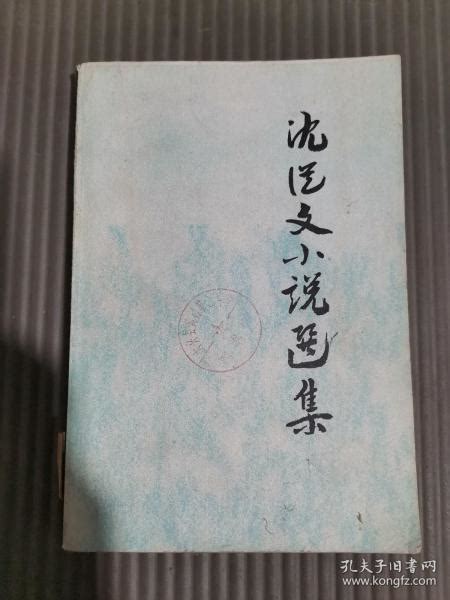 沈从文小说选集
孔夫子旧书网
www.kongfz.com